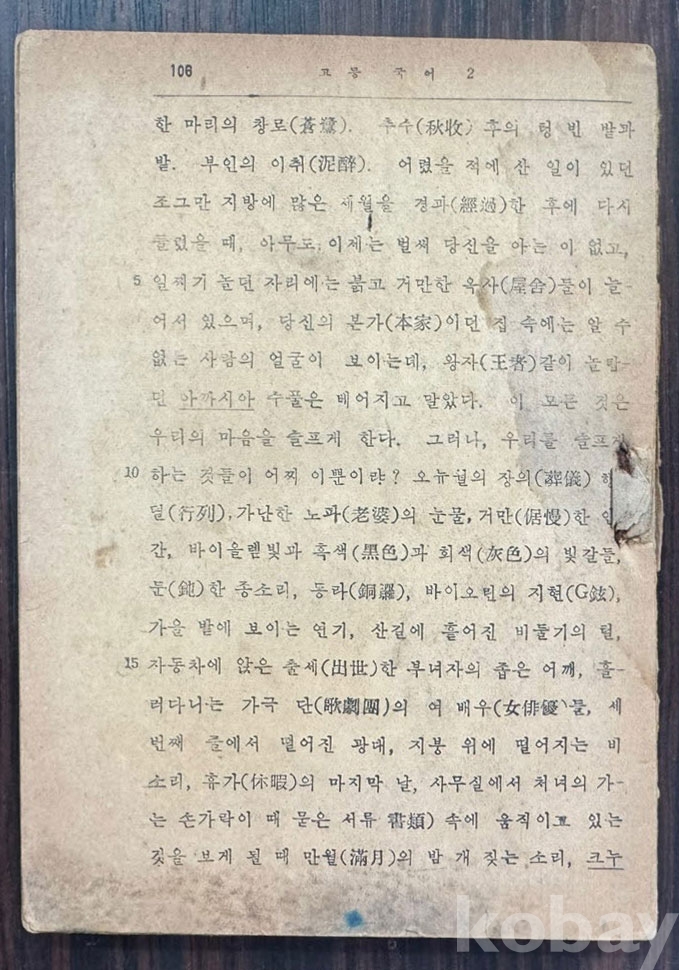 106 고등 국어 2
한 마리의 창로(蒼鷺). 추수(秋收) 후의 텅 빈 밭과
밭. 부인의 이취(泥醉). 어렸을 적에 산 일이 있던
조그만 지방에 많은 세월을 경과(經過)한 후에 다시
들렀을 때, 아무도 이제는 벌써 당신을 아는 이 없고,
5 일찌기 놀던 자리에는 붉고 거만한 옥사(屋舍)들이 늘-
어서 있으며, 당신의 본가(本家)이던 집 속에는 알 수
없는 사람의 얼굴이 보이는데, 왕자(王者)같이 놀랍-
던 아까시아 수풀은 베어지고 말았다. 이 모든 것은
우리의 마음을 슬프게 한다. 그러나, 우리를 슬프게
10 하는 것들이 어찌 이뿐이랴? 오뉴월의 장의(葬儀)
렬(行列), 가난한 노파(老婆)의 눈물, 거만(倨慢)한
간, 바이올렡빛과 흑색(黑色)과 회색(灰色)의 빛갈들,
둔(鈍)한 종소리, 동라(銅鑼), 바이오린의 지현(G鉉),
가을 밭에 보이는 연기, 산길에 흩어진 비둘기의 털,
15 자동차에 앉은 출세(出世)한 부녀자의 좁은 어깨, 흘-
러다니는 가극 단(歌劇團)의 여 배우(女俳優)들, 세
번째 줄에서 떨어진 광대, 지붕 위에 떨어지는 비
소리, 휴가(休暇)의 마지막 날, 사무실에서 처녀의 가-
는 손가락이 때 묻은 서류 書類) 속에 움직이고 있는
것을 보게 될 때 만월(滿月)의 밤 개 짖는 소리, 크누
kobay